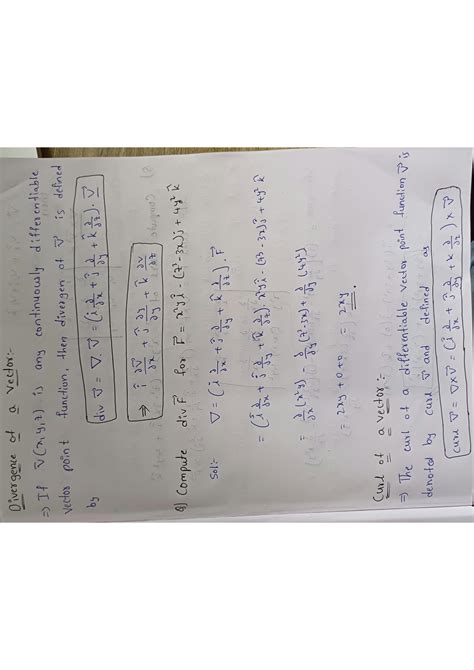 Divergence of a Vector:-
⇒ If v⃗(x,y,z) is any continuously differentiable
vector point function, then divergen of v⃗ is defined
by
div v⃗ = ∇.v⃗ = (î ∂/∂x + ĵ ∂/∂y + k̂ ∂/∂z). v⃗
⇒ î ∂v⃗/∂x + ĵ ∂v/∂y + k̂ ∂v/∂z
Q) Compute div F⃗ for F⃗ = x²yî - (z³-3x)ĵ + 4y²k̂
Sol:-
∇ = (î ∂/∂x + ĵ ∂/∂y + k̂ ∂/∂z). F⃗
= (î ∂/∂x + ĵ ∂/∂y + k̂ ∂/∂z). x²yî - (z³-3x)ĵ + 4y²k̂
∂/∂x (x²y) - ∂/∂y (z³-3x) + ∂/∂z (4y²)
= 2xy + 0 + 0 = 2xy
Curl of a vector:-
⇒ The curl of a differentiable vector point function v⃗ is
denoted by curl v⃗ and defined as
curl v⃗ = ∇×v⃗ = (î ∂/∂x + ĵ ∂/∂y + k̂ ∂/∂z) × v⃗